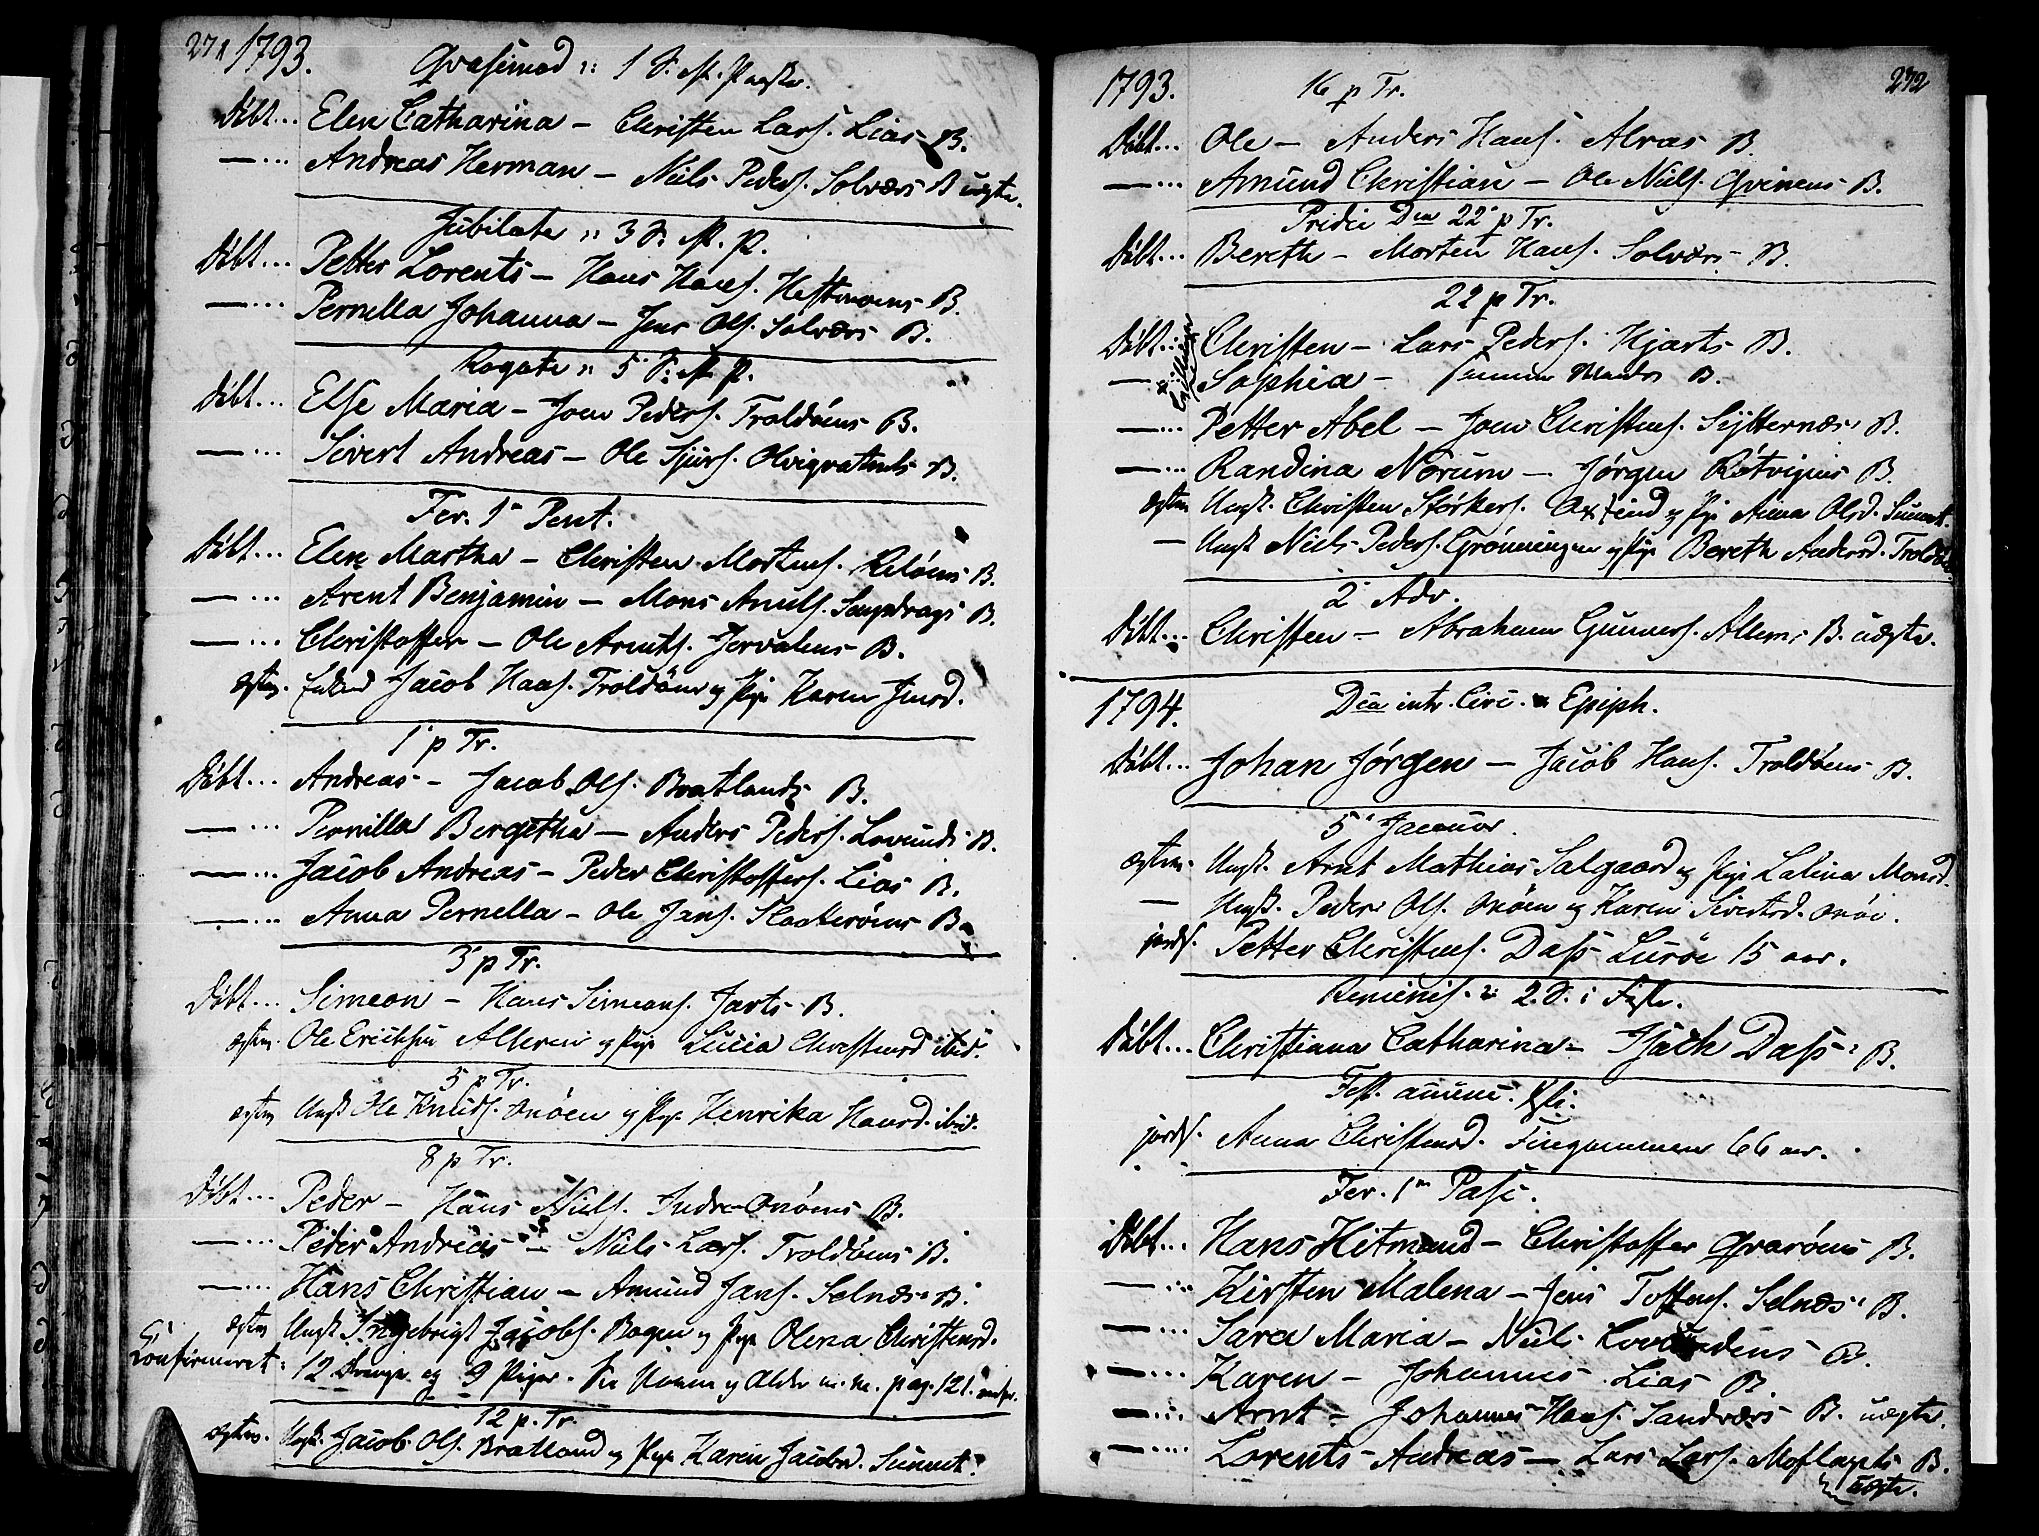 271 1793. Qvasimod :: 1 S. P.
Döbt... Elen Catharina – Christen Lars. Lias B.
— ... Andreas Herman – Niels Peders. Solværs B uægte.
Jubilate :: 3 S. P.
Döbt... Petter Lorents – Hans Hans. Hestmoens B.
— ... Pernella Johanna – Jens Ols. Solværs B.
Rogate :: 5 S. P.
Döbt... Else Maria – Joen Peders. Troldöens B.
— ... Sivert Andreas – Ole Sjurs. B.
Fer. 1ª Pent.
Döbt... Elen Martha – Christen Mortens. B.
— ... Arent Benjamin – Mons B.
— ... Christoffer – Ole Arnts. B.
Jacob Hans. Troldöen og Pige Karen Jensd.
1 p Tr.
Döbt... Andreas – Jacob Ols. Bratlands B.
— ... Pernilla Bergetha – Anders Peders. Lovunds B.
— ... Jacob Andreas – Peder Christoffers. Lias B.
— ... Anna Pernella – Ole Jans. B.
3 p Tr.
Döbt... Simeon – Hans Simeons. Jarts B.
Ole Erichsen og Pige Lucia Christensd ibid.
5 p Tr.
Ungk Ole Knuds. Onöen og Pige Henrika Hansd. ibid.
8 p Tr.
Döbt... Peder – Hans Niels. Indre-Onöens B.
— ... Peder Andreas – Niels Lars. Troldöens B.
— ... Hans Christian – Amund Jans. Selnæs B.
Ungk Ingebrigt Jacobs. Bogen og Pige Olena Christensd.
Confirmeret: 12 Drenge og 9 Piger. og Alder pag. 121.
12 p. Tr.
Ungk. Jacob Ols. Bratland og Pige Karen Jacobsd.
1793. 16 p Tr. 272
Döbt... Ole – Anders Hans. B.
— ... Amund Christian – Ole Niels. Qvinens B.
Pridie Dca 22 p Tr.
Döbt... Bereth – Morten Hans. Solværs B.
22 p Tr.
Döbt... Christen – Lars Peders. Hjarts B.
— Sophia – B.
— ... Petter Abel – Joen Christens. B.
— ... Randina Norum – Jörgen B.
Ungk. Christen Störkers. og Pige Anna Olsd.
— Ungk Niels Peders. Grönningen og Pige Bereth Andersd.
2 Adv.
Döbt... Christen – Abraham Gunners. B. uægte.
1794. Dca intr. Circ. & Epiph.
Döbt... Johan Jörgen – Jacob Hans. Troldöens B.
5 Januar.
Ungk. Arnt Mathias Salgaard og Pige Lalina Monsd.
— Ungk. Peder Ols. Onöen og Karen Sivertsd. Onöe.
jords. Petter Christens. Dass Luröe 15 aar.
Reminis. :: 2. S. i Faste.
Döbt... Christiana Catharina – Isach Dass: B.
Fest. annunc.
jords. Anna Christensd. 66 aar.
Fer. 1ª Pasc.
Döbt... Hans Hitmand – Christoffer Qvaröens B.
— ... Kirsten Malena – Jens Selnæs B.
— ... Sara Maria – Niels Lovundens B.
— ... Karen – Johannes Lias B.
— ... Arnt – Johannes Hans. Sandværs B. uægte.
— ... Lorents Andreas – Lars Lars. B.
uægte.